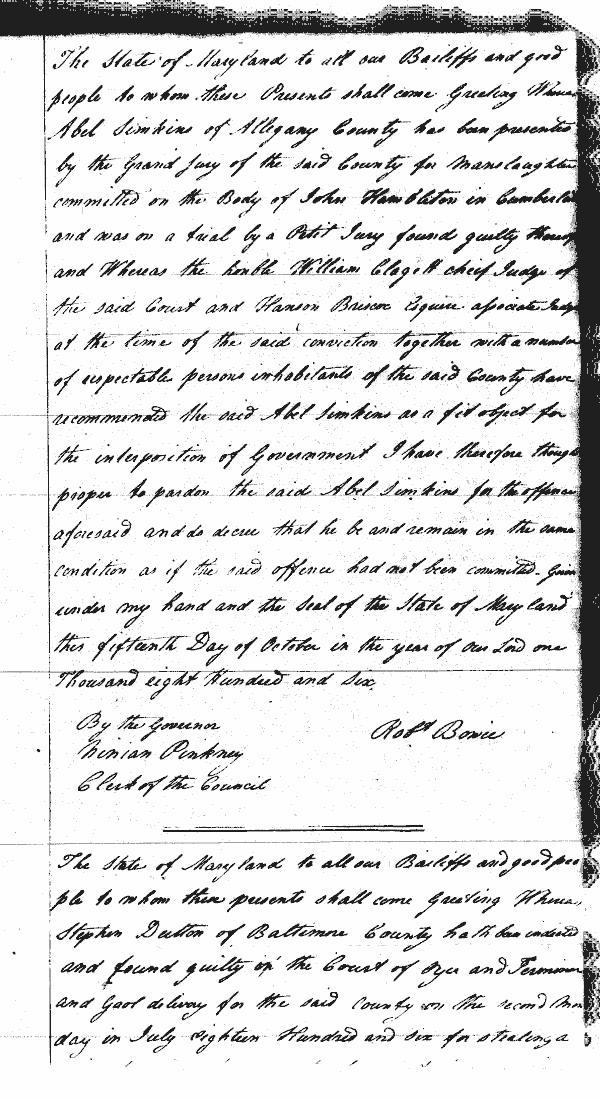 The State of Maryland to all our Bailiffs and good
people to whom these Presents shall come Greeting Whereas
Abel Simkins of Allegany County has been presented
by the Grand Jury of the said County for Manslaughter
committed on the Body of John Hambleton in Cumberland
and was on a trial by a Petit Jury found guilty thereof
and Whereas the honble William Clagett chief Judge of
the said Court and Hanson Briscoe Esquire associate Judge
at the time of the said conviction together with a number
of respectable persons inhabitants of the said County have
recommended the said Abel Simkins as a fit object for
the interposition of Government I have therefore thought
proper to pardon the said Abel Simkins for the offence
aforesaid and do decree that he be and remain in the same
condition as if the said offence had not been committed. Given
under my hand and the Seal of the State of Maryland
this fifteenth Day of October in the year of our Lord one
Thousand eight Hundred and Six.
By the Governor
Robt Bowie
Ninian Pinkney
Clerk of the Council
The State of Maryland to all our Bailiffs and good peo
ple to whom these presents shall come Greeting Whereas
Stephen Dutton of Baltimore County hath been indicted
and found guilty in the Court of Oyer and Terminer
and Gaol delivery for the said County on the second Mon
day in July eighteen Hundred and six for stealing a